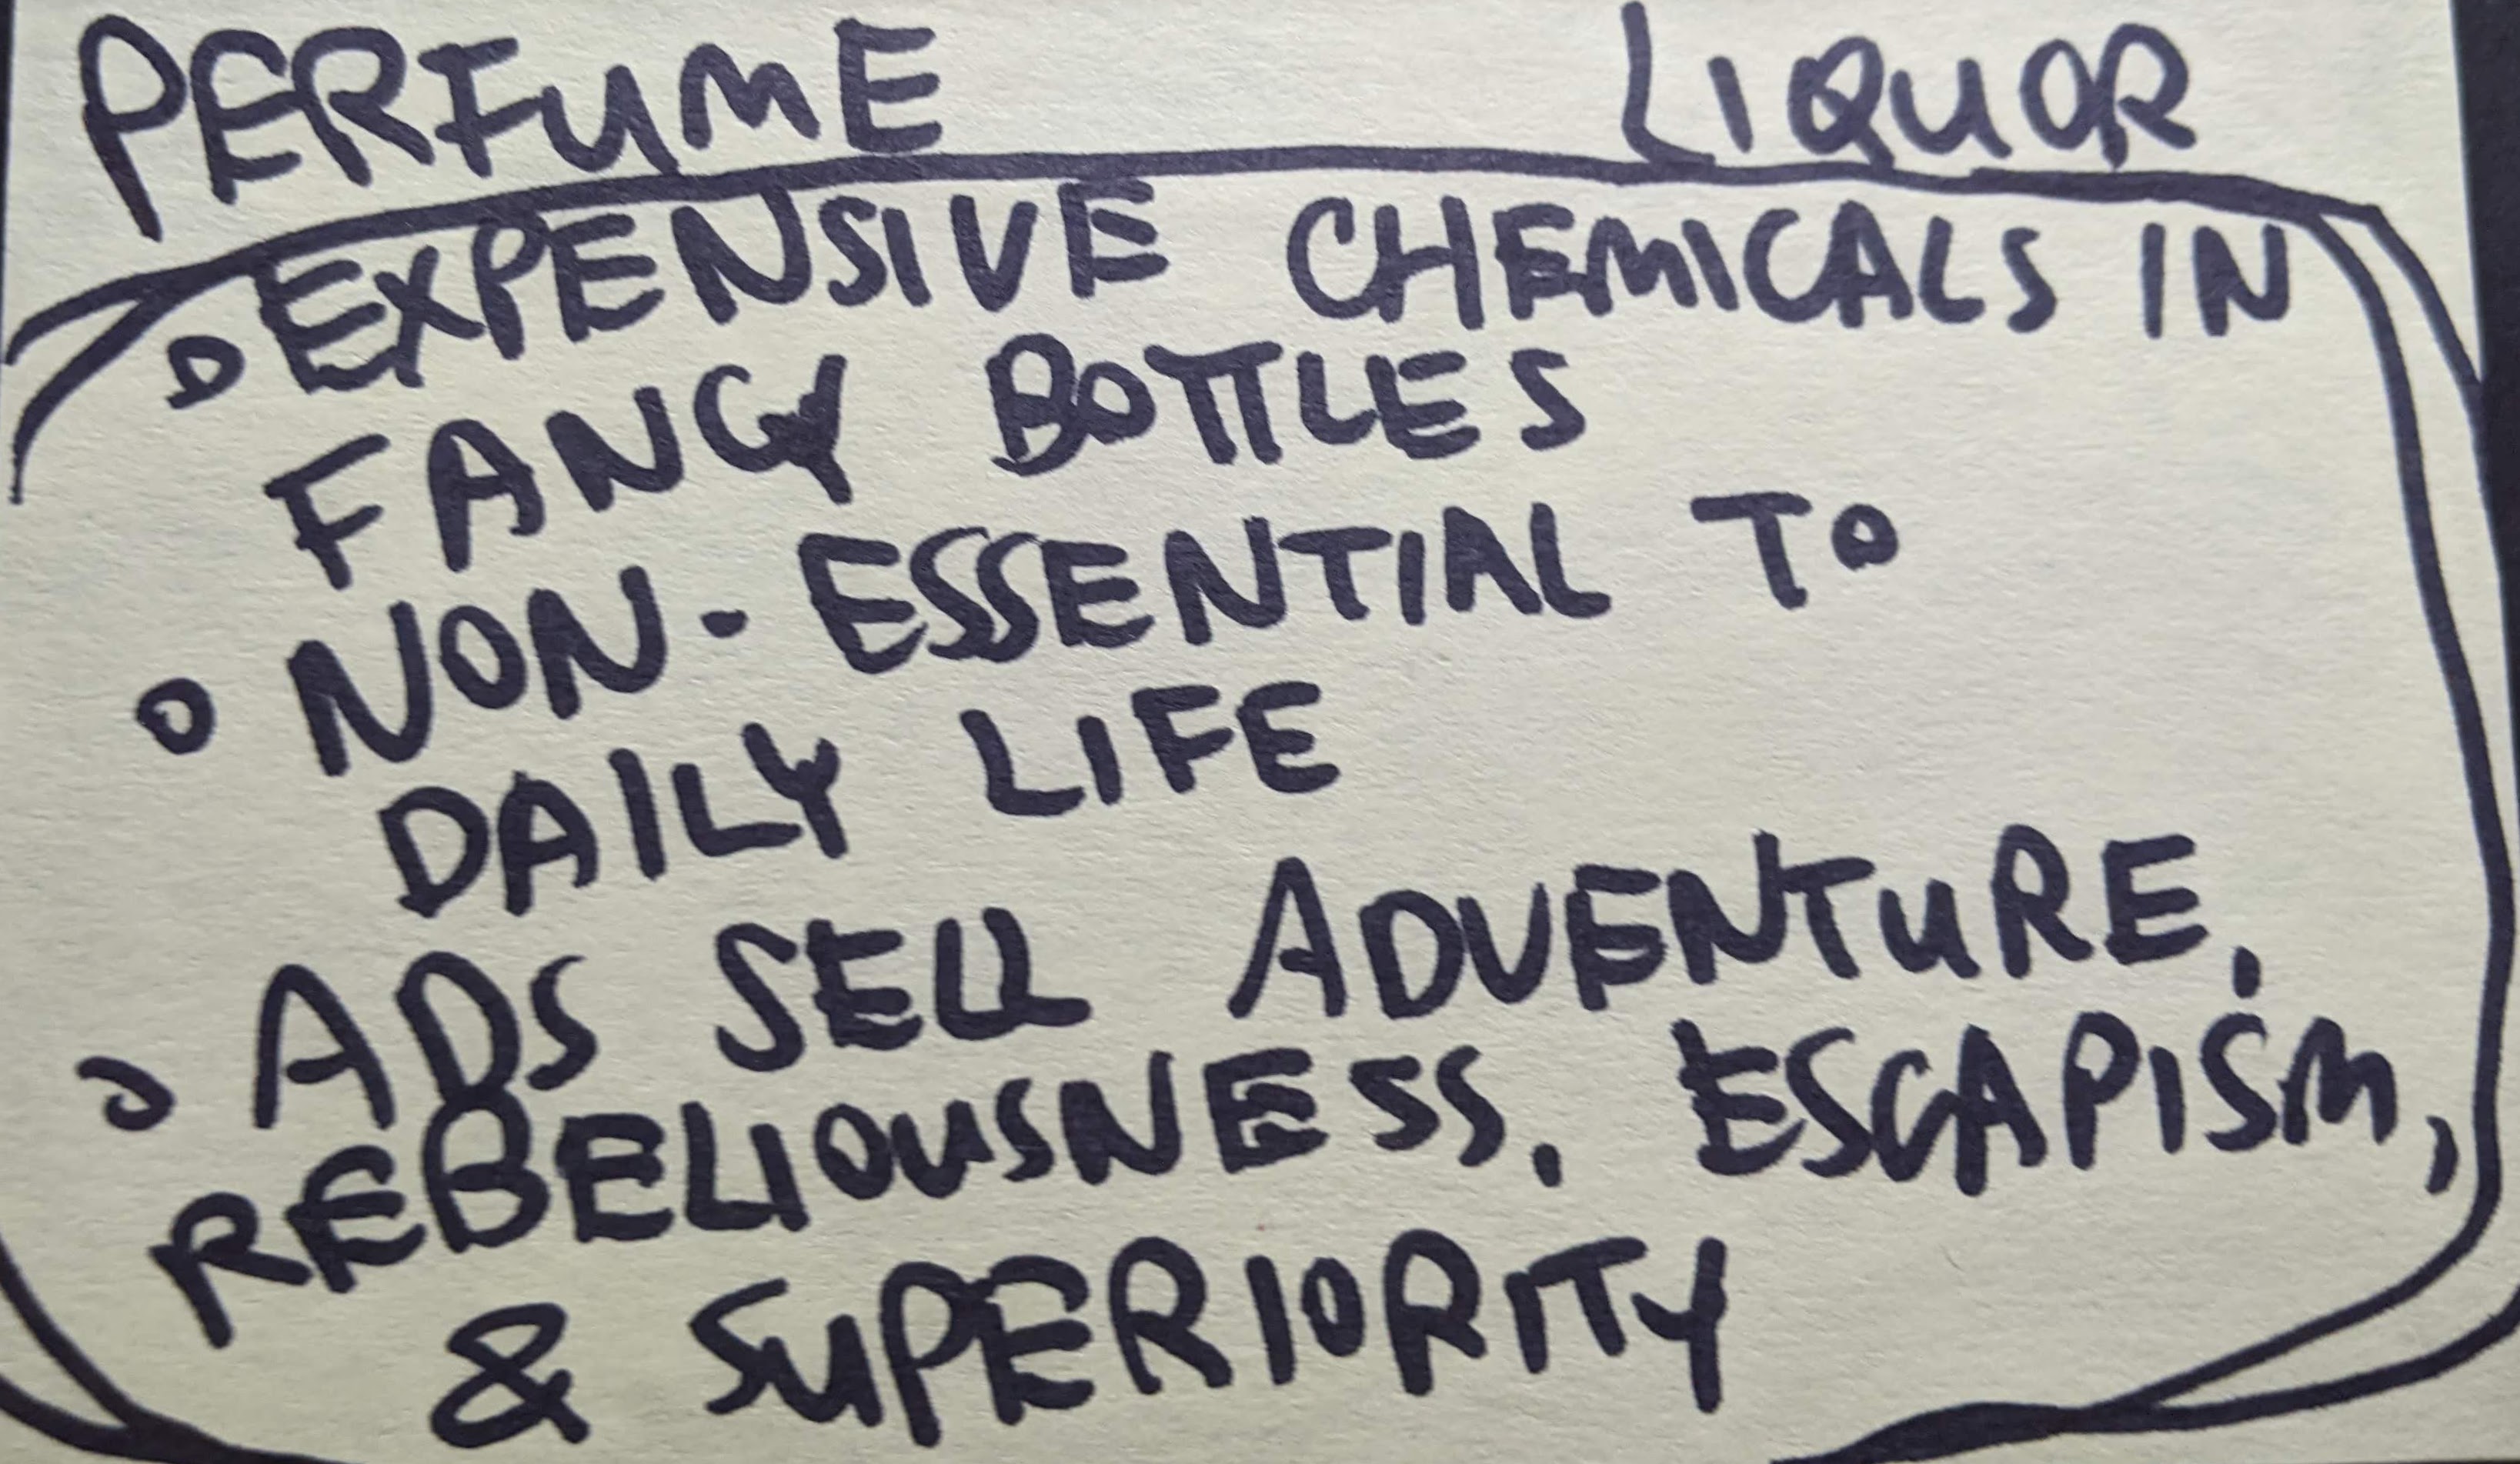 PERFUME LIQUOR
o EXPENSIVE CHEMICALS IN
FANCY BOTTLES
o NON-ESSENTIAL TO
DAILY LIFE
o ADS SELL ADVENTURE,
REBELIOUSNESS, ESCAPISM,
& SUPERIORITY